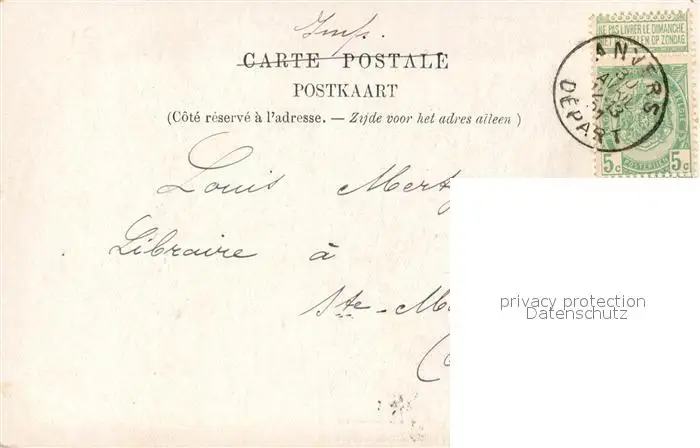 Imp.
CARTE POSTALE
POSTKAART
(Côté réservé à l'adresse. — Zijde voor het adres alleen)
NE PAS LIVRER LE DIMANCHE
NIET BESTELLEN OP ZONDAG
ANVERS
DÉPART
POSTERIJEN
5c 5c
Louis Mertz
Libraire à
Ste-M
privacy protection
Datenschutz